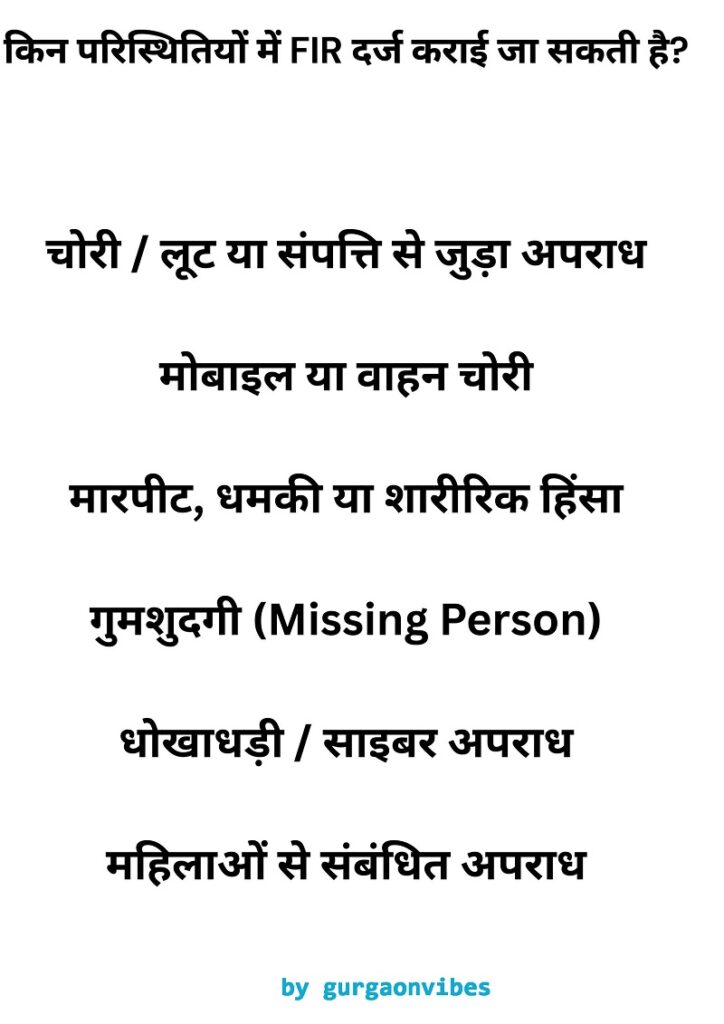 किन परिस्थितियों में FIR दर्ज कराई जा सकती है?
चोरी / लूट या संपत्ति से जुड़ा अपराध
मोबाइल या वाहन चोरी
मारपीट, धमकी या शारीरिक हिंसा
गुमशुदगी (Missing Person)
धोखाधड़ी / साइबर अपराध
महिलाओं से संबंधित अपराध
by gurgaonvibes